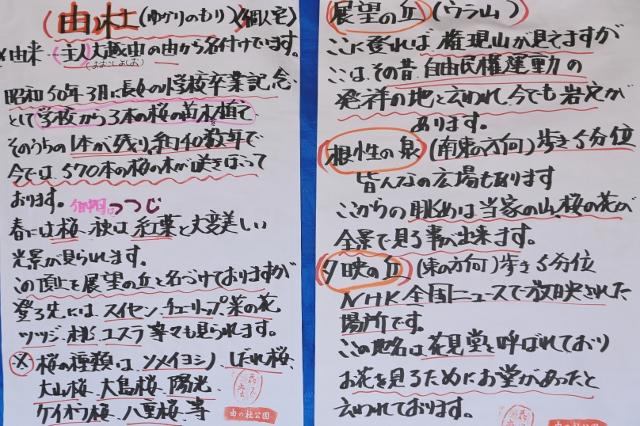 由の杜(ゆかりのもり)(個人宅)
※由来 主人大越由の由から名付けています。
おおこしよしお
昭和50年3月に長女の小学校卒業記念
として学校から3本の桜の苗木植えて
そのうちの1本が残り。約40数年で
今では570本の桜の木が咲きほこって
おります。 つつじ
春には桜、秋は紅葉と大変美しい
光景が見られます。
この頂上を展望の丘と名づけておりますが
登る先には、スイセン、チューリップ、菜の花
ツツジ、桃、ユスラ等々も見られます。
※桜の種類は、ソメイヨシノ、しだれ桜、
大山桜、大島桜、陽光
ケイオウ桜、八重桜、等
由の杜公園
展望の丘(ウラ山)
ここに登れば権現山が見えてますが
ここは、その昔、自由民権運動の
発祥の地と云われ、今でも岩穴が
あります。
根性の泉(南東の方向)歩き5分位
皆んなの広場もあります
ここからの眺めは当家の山、桜の花が
全景で見る事が出来ます。
夕映の丘(東の方向)歩き5分位
NHK全国ニュースで放映された
場所です。
この地名は花見堂と呼ばれており
お花を見るためにお堂があったと
云われております。
由の杜公園